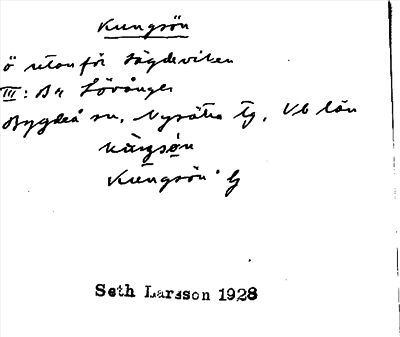 Kungsön
ö utanför Sägdeviken
III: Ba Lövånger
Bygdeå sn, Nysätra tg, Vb län
kùŋsö́n
Kungsön
Seth Larsson 1928